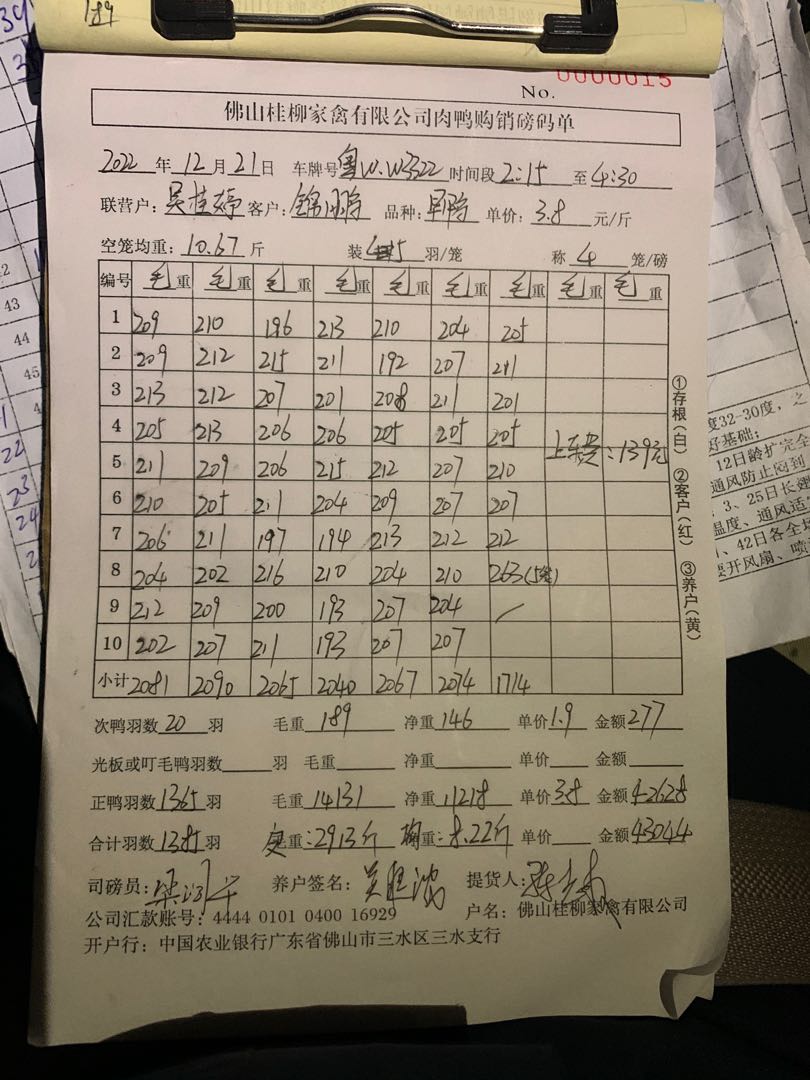 189
No. 0000015
佛山桂柳家禽有限公司肉鸭购销磅码单
2022 年 12 月 21 日 车牌号 粤W.W3322 时间段 2:15 至 4:30
联营户: 吴桂婷 客户: 锦鹏 品种: 单价: 3.8 元/斤
空笼均重: 10.67 斤 装 5 羽/笼 称 4 笼/磅
编号 毛重 毛重 毛重 毛重 毛重 毛重 毛重 毛重 毛重
1 209 210 196 213 210 204 205
2 209 212 215 211 192 207 211
3 213 212 207 201 208 211 201
4 205 213 206 206 205 205 205
5 211 209 206 215 212 207 210 上车费:139元
6 210 205 211 204 209 207 207
7 206 211 197 194 213 212 212
8 204 202 216 210 204 210 263(5笼)
9 212 209 200 193 207 204 /
10 202 207 211 193 207 207
小计 2081 2090 2065 2040 2067 2074 1714
①存根(白) ②客户(红) ③养户(黄)
次鸭羽数 20 羽 毛重 189 净重 146 单价 1.9 金额 277
光板或叮毛鸭羽数 羽 毛重 净重 单价 金额
正鸭羽数 1365 羽 毛重 14131 净重 11218 单价 3.8 金额 42628
合计羽数 1385 羽 皮重:2913斤 均重:8.22斤 单价 金额 43044
司磅员: 养户签名: 提货人:
公司汇款账号: 4444 0101 0400 16929 户名: 佛山桂柳家禽有限公司
开户行: 中国农业银行广东省佛山市三水区三水支行
43
44
45
22
23
24
度32-30度,之
好基础;
12日龄扩完全
通风防止闷到
、3、25日长速
温度、通风适
、42日各全
要开风扇、喷